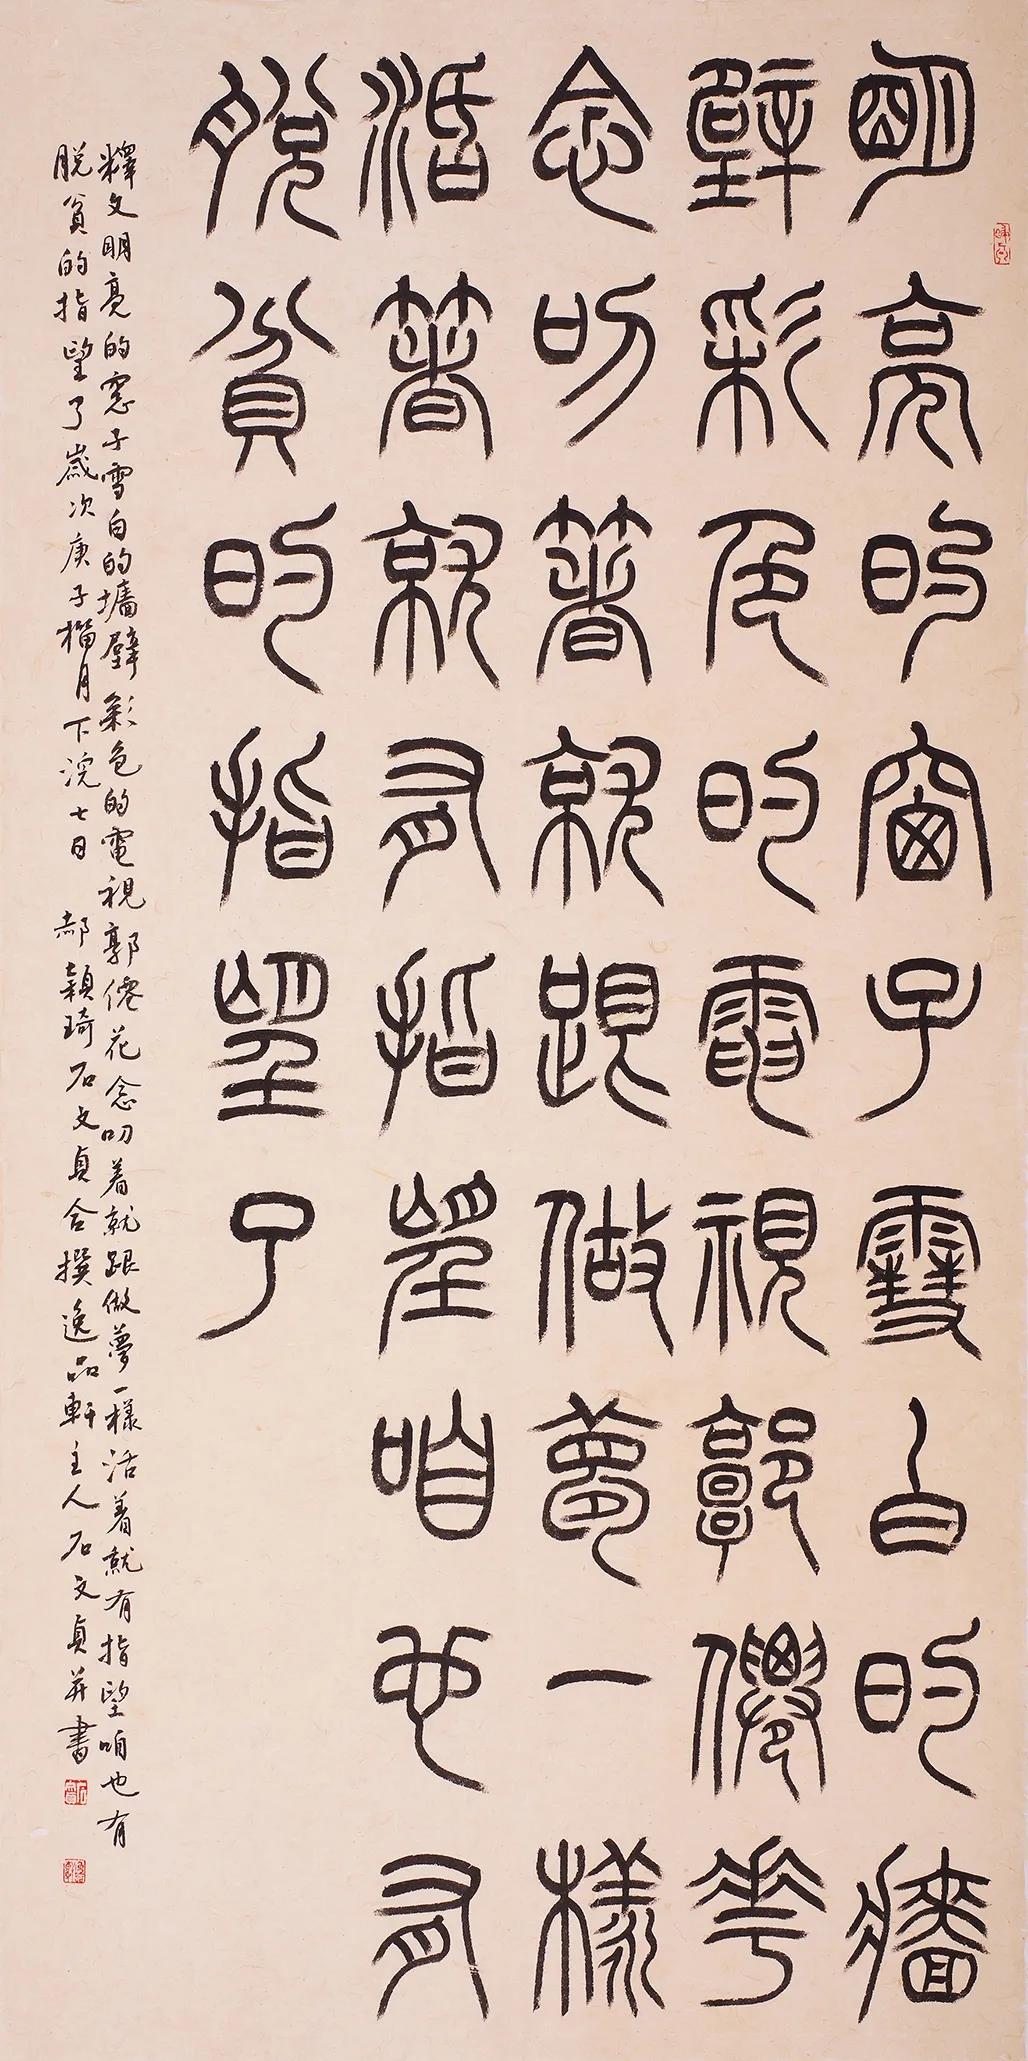 明亮的窗子雪白的牆
壁彩色的電視郭僊花
念叨著就跟做夢一樣
活著就有指望咱也有
脫貧的指望了
釋文明亮的窓子雪白的墻壁彩色的電視郭僊花念叨着就跟做夢一樣活着就有指望咱也有
脱貧的指望了歲次庚子榴月下浣七日 郝穎琦石文貞合撰逸品軒主人石文貞并書